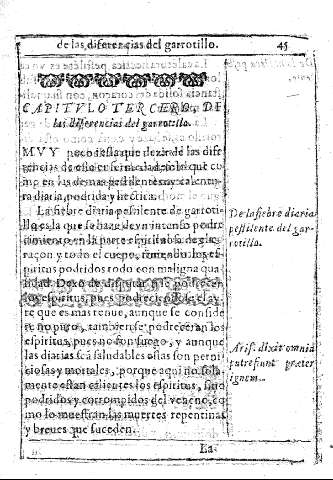 de las diferencias del garrotillo. 45
CAPITVLO TERCERO, DE
las diferencias del garrotillo.
MVY poco resta que dezir de las dife
rencias de esta enfermedad, sola que co
mo en las demas pestilentes ay calentu
ra diaria, podrida y hectica.
La fiebre diaria pestilente de garroti-
llo, es la que se haze de vn intenso podre
cimiento en la parte espirituosa de
raçon y todo el cuerpo,
piritus podridos todo con maligna qua
lidad. Dexo de disputar
los espiritus, pues podreciendose el ay
re que es mas tenue, aunque se conside
re no puro, tambien se podreceran los
espiritus, pues no son fuego, y aunque
las diarias seã saludables estas son perni
ciosas y mortales, porque aqui no sola
mente estan calientes los espiritus, sino
podridos y corrompidos del veneno, co
mo lo muestran las muertes repentinas
y breues que suceden.
La
De la fiebre diaria
pestilente del gar-
rotillo.
Aris. dixit omnia
putrefiunt præter
ignem.